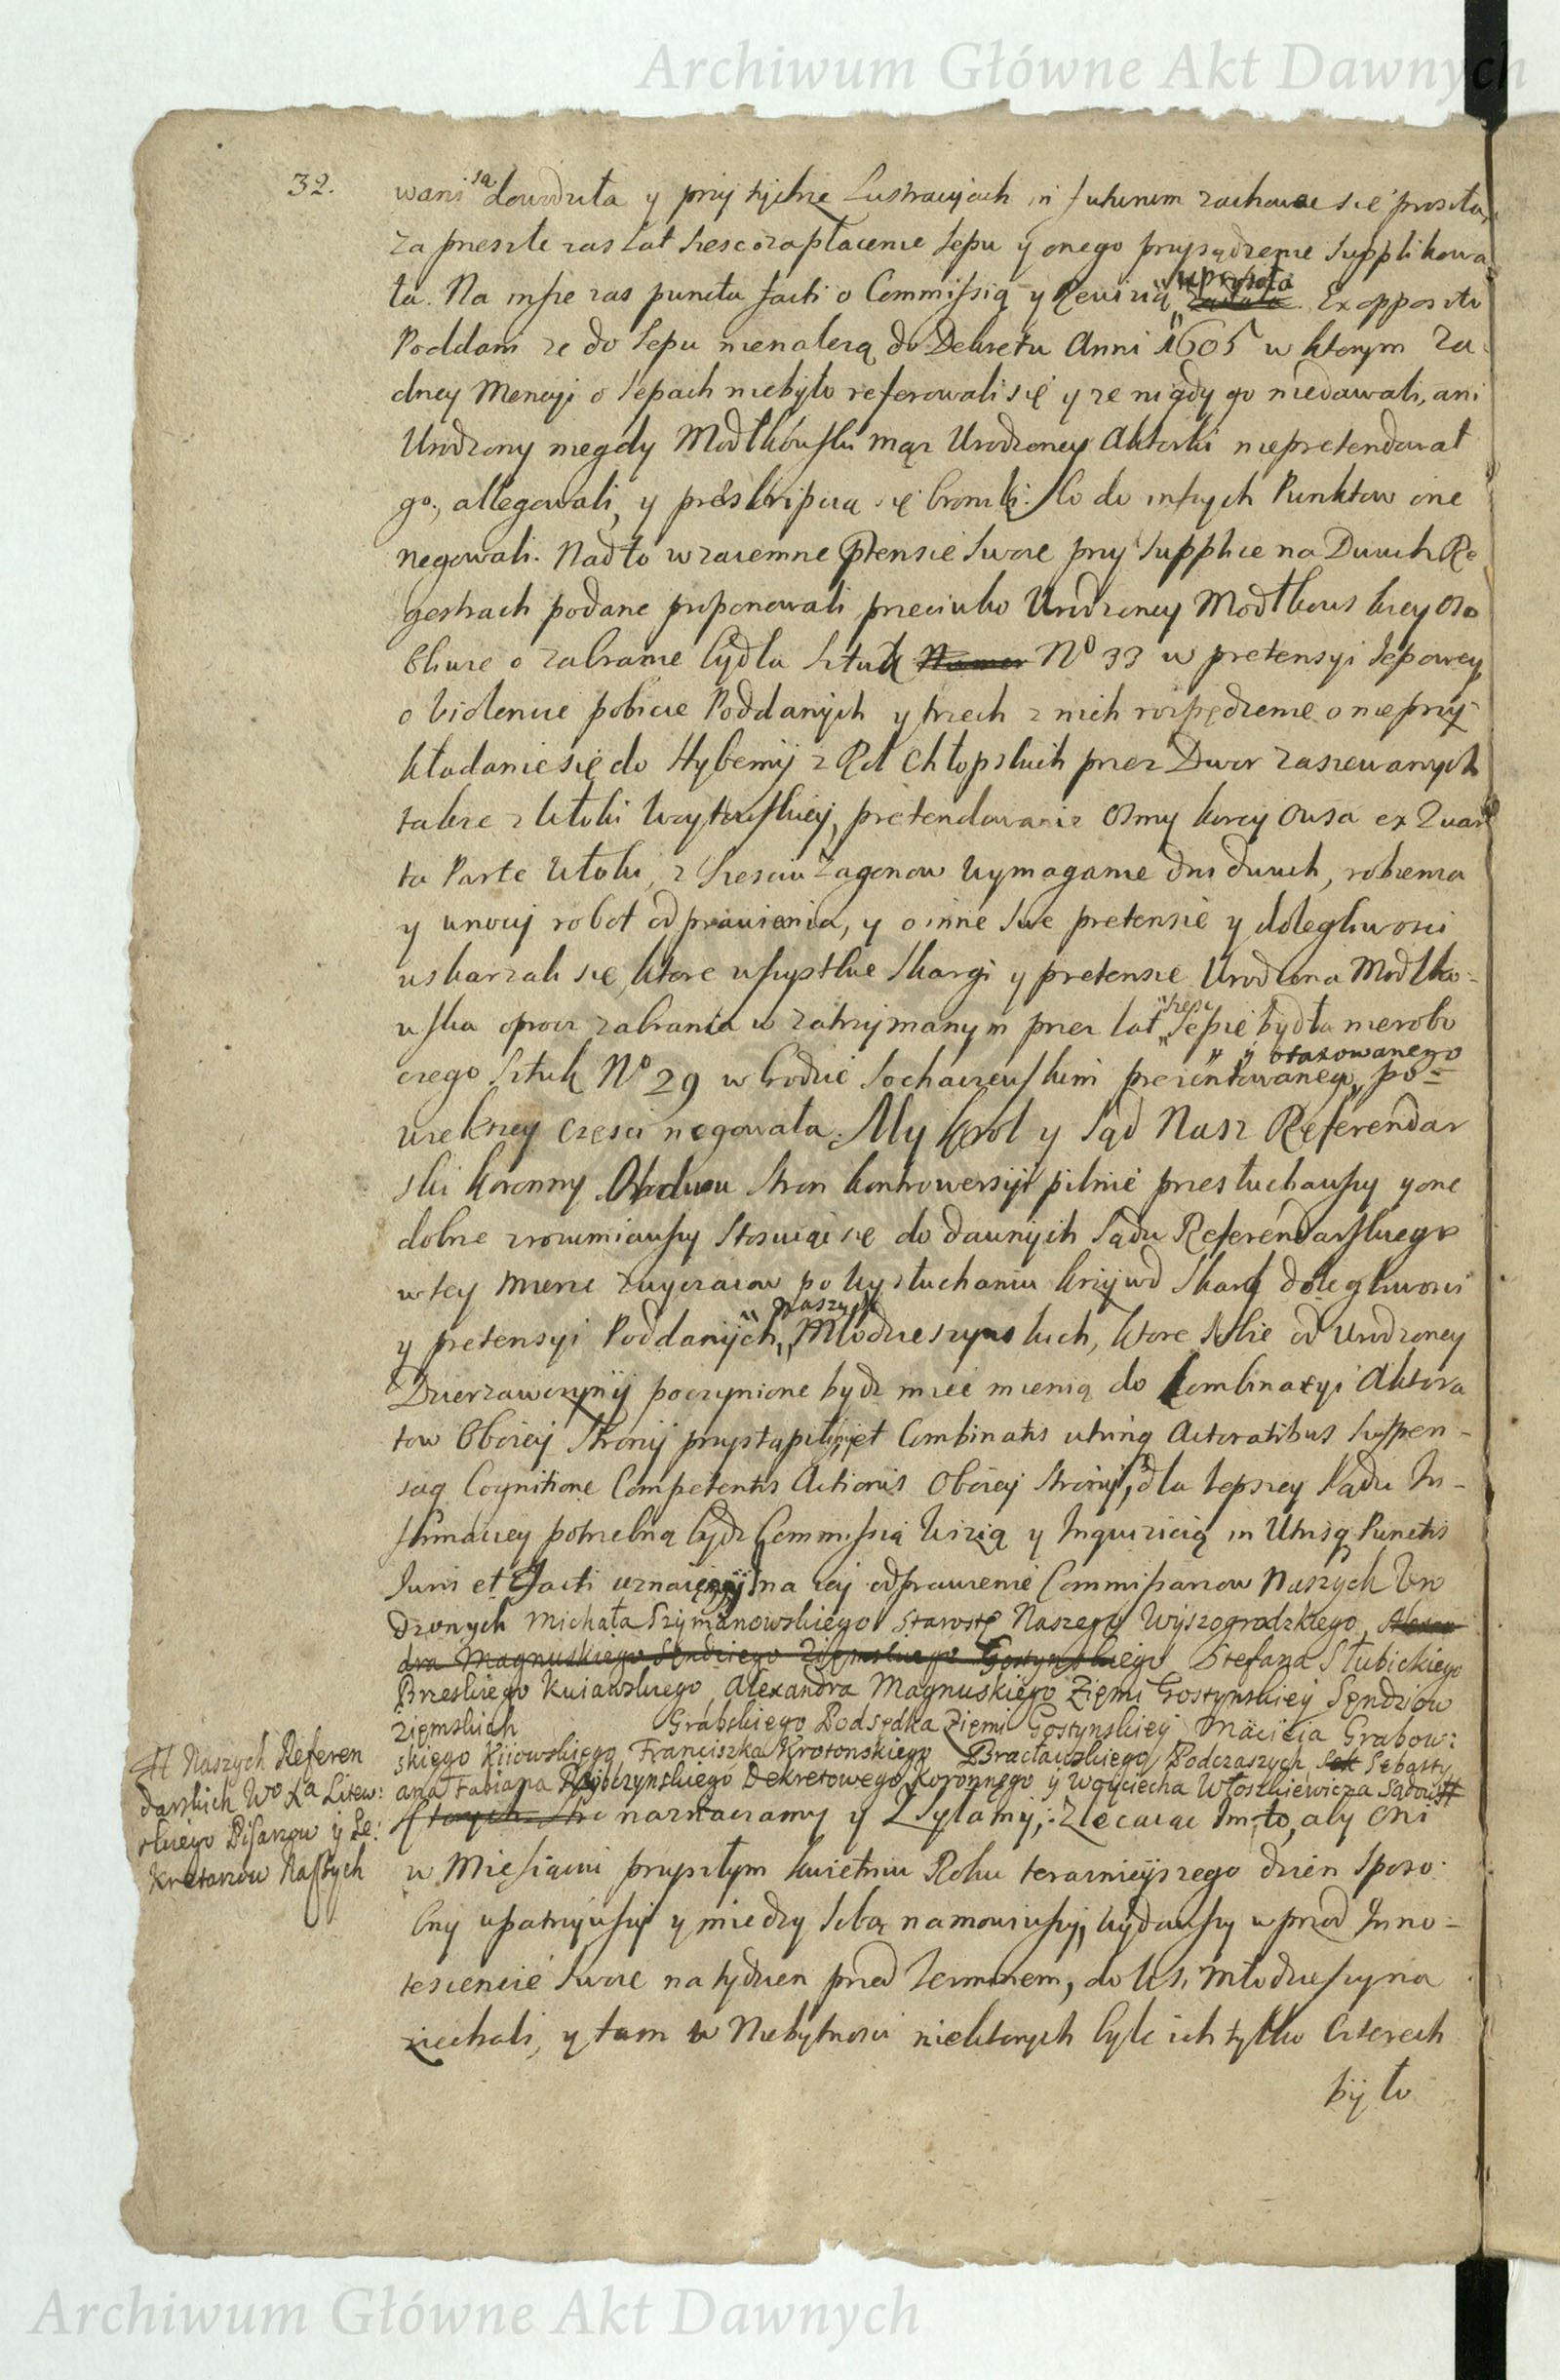 Archiwum Główne Akt Dawnych
32.
wani są dowodziła y przy tychże Lustracyjach in futurum zachowae się prosiła,
za przeszłe zas lat szesc o zapłacenie sepu y onego przysądzenie supplikowa
ła. Na insze zas puncta facti o Commissią y Rewizią uprosiła Ex opposito
Poddani ze do sepu nienalezą do Dekretu Anni 1605 w ktorym Za
dney Mencyi o sepach niebyło referowali się y ze nigdy go niedawali, ani
Urodzony niegdy Modłkowski mąz Urodzoney Aktorki niepretendował
go, allegowali, y preskripcią się bronili. Co do inszych Punktow one
negowali. Nad to wzaiemne ptensie swoie przy supplice na Dwuch Re
gestrach podane proponowali przeciwko Urodzoney Modłkowskiey oso
bliwie o zabranie bydła sztuk No 33 w pretensyi sepowey
o violencie pobicie Poddanych y trzech z nich rozpędzenie o nieprzy
kładanie się do Hyberny z Rol Chłopskich przez Dwor zasiewanych
takze z włoki Woytowskiey, pretendowanie osmy korcy owsa ex Quar
ta Parte włoki, z szesciu zagonow wymaganie dni dwuch, robienia
y w nocy robot odprawienia, y o inne swe pretensie y dolegliwosci
uskarzali się, ktore wszystkie skargi y pretensie Urodzona Modłko-
wska oprocz zabrania w zatrzymanym przez lat szesc sepie bydła nierobo
czego sztuk No 29 w Grodzie Sochaczewskim prezentowanego y otaxowanego po=
wiekszey częsci negowała. My Krol y Sąd Nasz Referendar
ski koronny Obodwu stron kontrowersyi pilnie przesłuchawszy y one
dobrze zrozumiawszy stosuiąc się do dawnych Sądu Referendarskiego
w tey mierze zwyczaiow po wysłuchaniu krzywd skarg dolegliwosci
y pretensyi Poddanych naszych Młodzieszynskich, ktore sobie od Urodzoney
Dzierzawczyny poczynione bydz miec mienią do kombinacyi Aktora
tow Oboiey strony przystąpili, et Combinatis utrinq Actoratibus suspen-
saq Cognitione Competentis Actionis Oboiey strony, dla lepszey Sądu In-
formacyey potrzebną bydz Commissią Wizią y Inquizicią in Utrisq Punctis
Juris et Facti uznaię na iey odprawienie Commissarzow Naszych Uro
dzonych Michała Szymanowskiego Starostę Naszego Wyszogrodzkiego, Alexan
dra Magnuskiego Sędziego Ziemskiego Gostynskiego Stefana Słubickiego
Brzeskiego Kuiawskiego, Alexandra Magnuskiego Ziemi Gostynskiey Sendziow
Ziemskich Grabskiego Podsędka Ziemi Gostynskiey Macieia Grabow:
skiego Kiiowskiego, Franciszka Krotonskiego Bracławskiego Podczaszych, Sebasty
ana Fabiana Rybczynskiego Dekretowego Koronnego y Woyciecha Włoszkiewicza Sądow #
# Naszych Referen
darskich Wo Xa Litew:
skiego Pisarzow y Se:
kretarzow Naszych
naznaczamy y Zsyłamy, Zlecaiąc Im to, aby oni
w Miesiącu przyszłym kwietniu Roku teraznieyszego dzien sposo:
bny upatrzywszy y miedzy sobą namowiwszy, wydawszy wprzod Inno-
tescencie swoie na tydzien przed Terminem, do Wsi Młodzieszyna
ziechali, y tam w Niebytnosci niektorych byle ich tylko czterech
było
Archiwum Główne Akt Dawnych